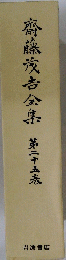 齋藤茂吉全集
第二十五卷
岩波書店